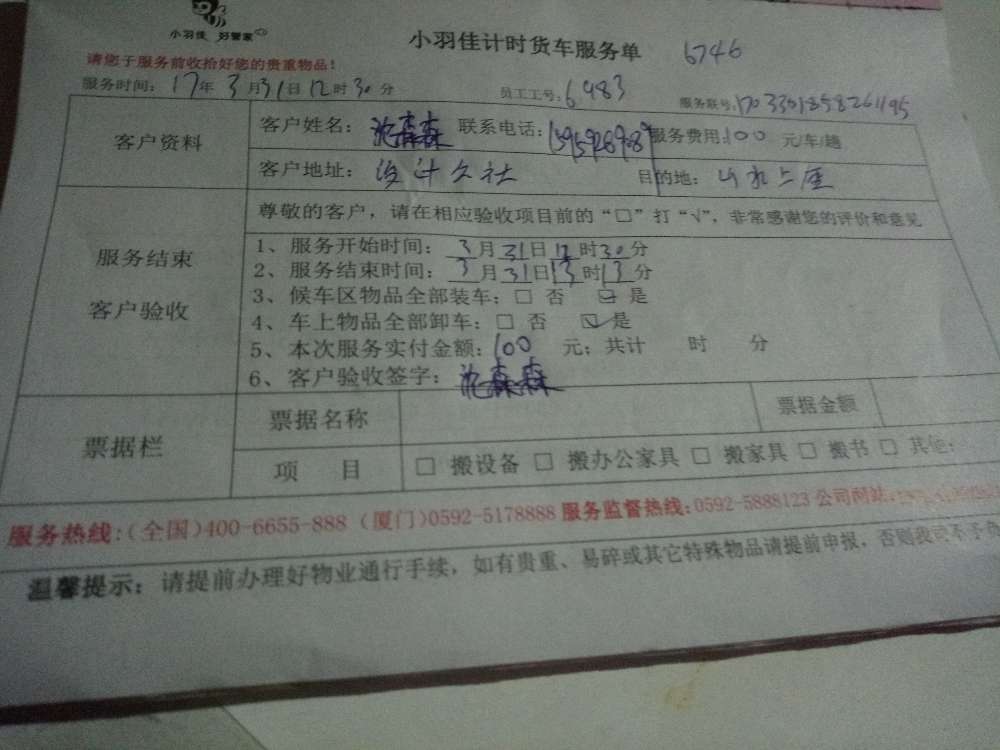 小羽佳 好管家
小羽佳计时货车服务单 6746
请您于服务前收拾好您的贵重物品！
服务时间：17年3月31日12时30分 员工工号：6983 服务联号：
客户资料 客户姓名： 联系电话： 服务费用：100 元/车/趟
客户地址： 目的地：山水上座
尊敬的客户，请在相应验收项目前的“□”打“√”，非常感谢您的评价和意见
服务结束
客户验收
1、服务开始时间：3月31日12时30分
2、服务结束时间：3月31日13时13分
3、候车区物品全部装车：□ 否 ☑ 是
4、车上物品全部卸车：□ 否 ☑ 是
5、本次服务实付金额：100 元；共计 时 分
6、客户验收签字：
票据栏 票据名称 票据金额
项 目 □ 搬设备 □ 搬办公家具 □ 搬家具 □ 搬书 □ 其他：
服务热线：（全国）400-6655-888（厦门）0592-5178888 服务监督热线：0592-5888123 公司网站：
温馨提示：请提前办理好物业通行手续，如有贵重、易碎或其它特殊物品请提前申报，否则我司不予